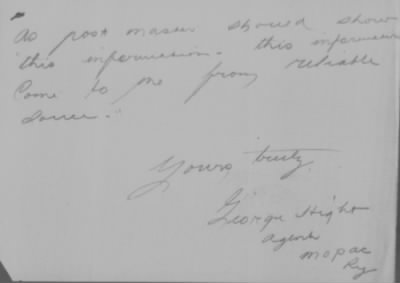 As post master should show
this information. this information
Come to me from reliable
source."
Yours truly
George Hight
agent
mopac
Ry